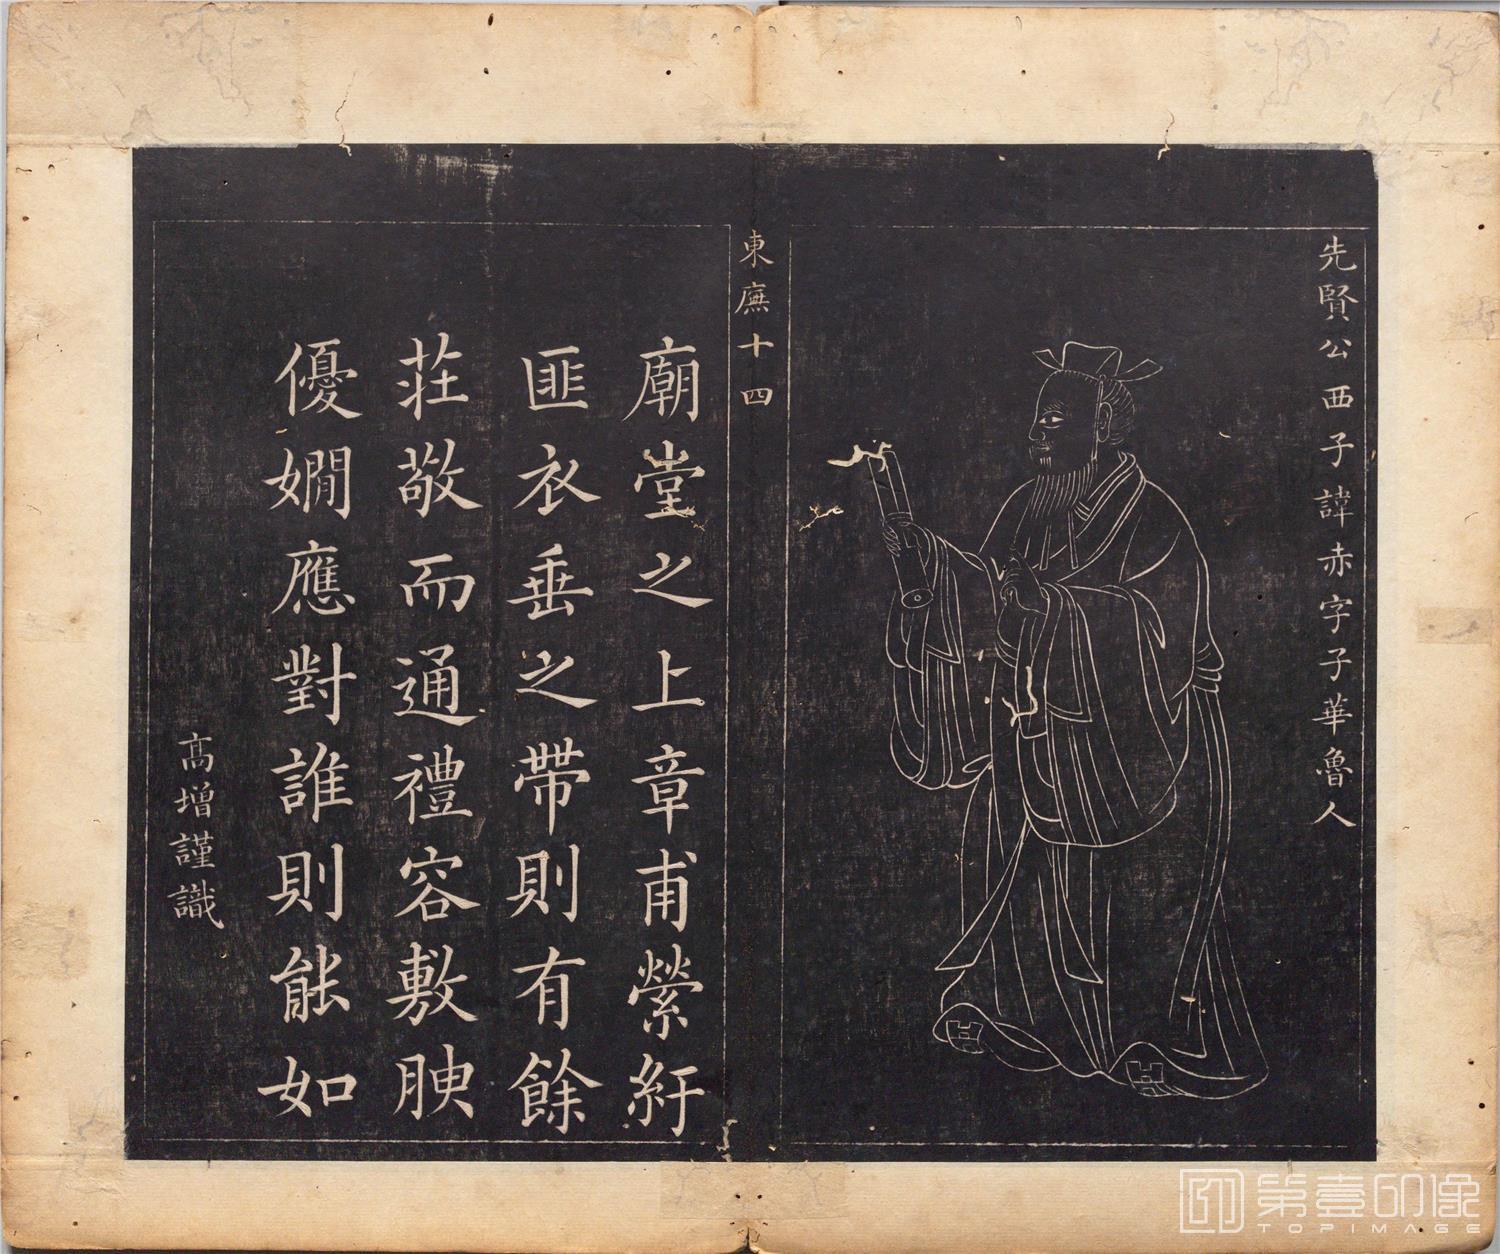 先賢公西子諱赤字子華魯人
東廡十四
廟堂之上章甫縈紆
匪衣垂之帶則有餘
莊敬而通禮容敷腴
優嫻應對誰則能如
高增謹識
第壹印像
TOPIMAGE